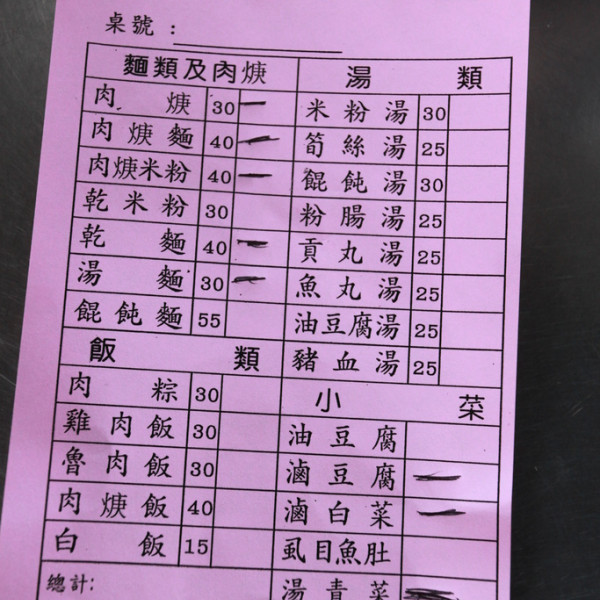 桌號：
麵類及肉焿
肉焿 30
肉焿麵 40
肉焿米粉 40
乾米粉 30
乾麵 40
湯麵 30
餛飩麵 55
飯類
肉粽 30
雞肉飯 30
魯肉飯 30
肉焿飯 40
白飯 15
總計:
湯類
米粉湯 30
筍絲湯 25
餛飩湯 30
粉腸湯 25
貢丸湯 25
魚丸湯 25
油豆腐湯 25
豬血湯 25
小菜
油豆腐
滷豆腐
滷白菜
虱目魚肚
湯青菜